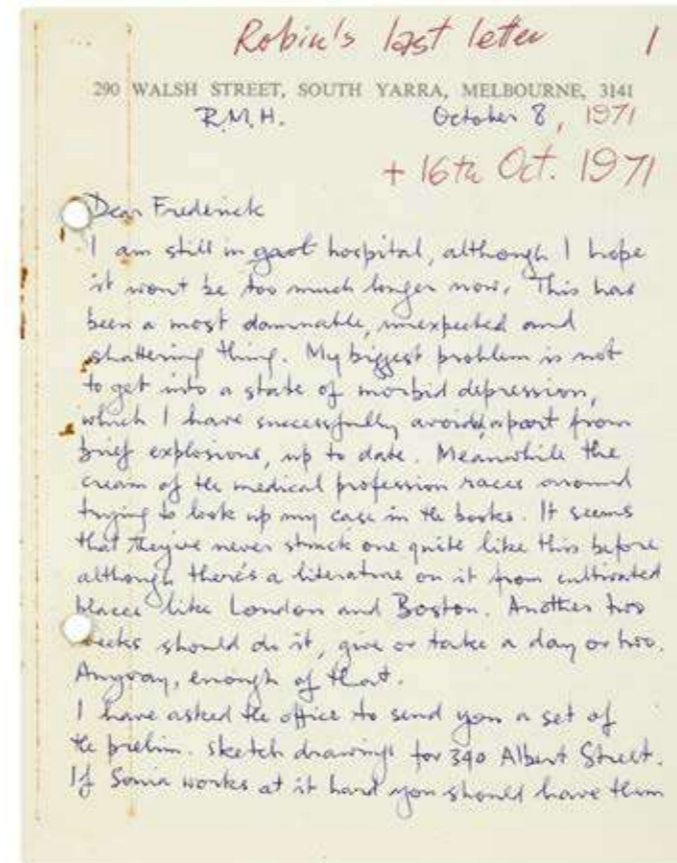 Robin's last letter 1
290 WALSH STREET, SOUTH YARRA, MELBOURNE, 3141
R.M.H. October 8, 1971
+ 16th Oct. 1971
Dear Frederick
I am still in gaol hospital, although I hope
it won't be too much longer now. This has
been a most damnable, unexpected and
shattering thing. My biggest problem is not
to get into a state of morbid depression,
which I have successfully avoided, apart from
brief explosions, up to date. Meanwhile the
cream of the medical profession races around
trying to look up my case in the books. It seems
that they've never struck one quite like this before
although there's a literature on it from cultivated
places like London and Boston. Another two
weeks should do it, give or take a day or two.
Anyway, enough of that.
I have asked the office to send you a set of
the prelim. sketch drawings for 340 Albert Street.
If Sonia works at it hard you should have them